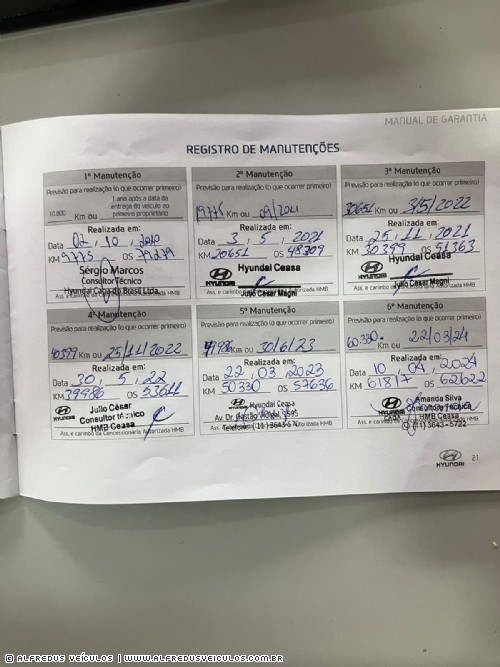 MANUAL DE GARANTIA
REGISTRO DE MANUTENÇÕES
1ª Manutenção
Previsão para realização (o que ocorrer primeiro)
10.000 Km ou 1 ano após a data da entrega do veículo ao primeiro proprietário
Realizada em:
Data 02, 10,
KM 9775 OS
Sérgio Marcos
Consultor Técnico
Hyundai Caoa do Brasil Ltda.
2ª Manutenção
Previsão para realização (o que ocorrer primeiro)
19775 Km ou
Realizada em:
Data 3, 5, 2021
KM 20651 OS 48309
HYUNDAI
Hyundai Ceasa
Julio Cesar Magni
3ª Manutenção
Previsão para realização (o que ocorrer primeiro)
30651 Km ou 3/5/2022
Realizada em:
Data 25, 11, 2021
KM 30399 OS 51363
Hyundai Ceasa
HYUNDAI
Julio Cesar Magni
4ª Manutenção
Previsão para realização (o que ocorrer primeiro)
40399 Km ou 25/11/2022
Realizada em:
Data 30, 5, 22
KM 39986 OS 53611
HYUNDAI
Julio César
Consultor Técnico
HMB Ceasa
Ass. e carimbo da Concessionária Autorizada HMB
5ª Manutenção
Previsão para realização (o que ocorrer primeiro)
49986 Km ou 30/6/23
Realizada em:
Data 22, 03, 2023
KM 50330 OS 57636
Hyundai Ceasa
Av. Dr. Gastão Vidigal,
Telefone: (11) 3643-
6ª Manutenção
Previsão para realização (o que ocorrer primeiro)
60.330 Km ou 22/03/24
Realizada em:
Data 10, 04, 2024
KM 61817 OS 62622
HYUNDAI
CAOA
Amanda Silva
Consultora Técnica
HMB Ceasa
(11) 3643-5722
HYUNDAI
21
© ALFREDUS VEÍCULOS | WWW.ALFREDUSVEICULOS.COM.BR